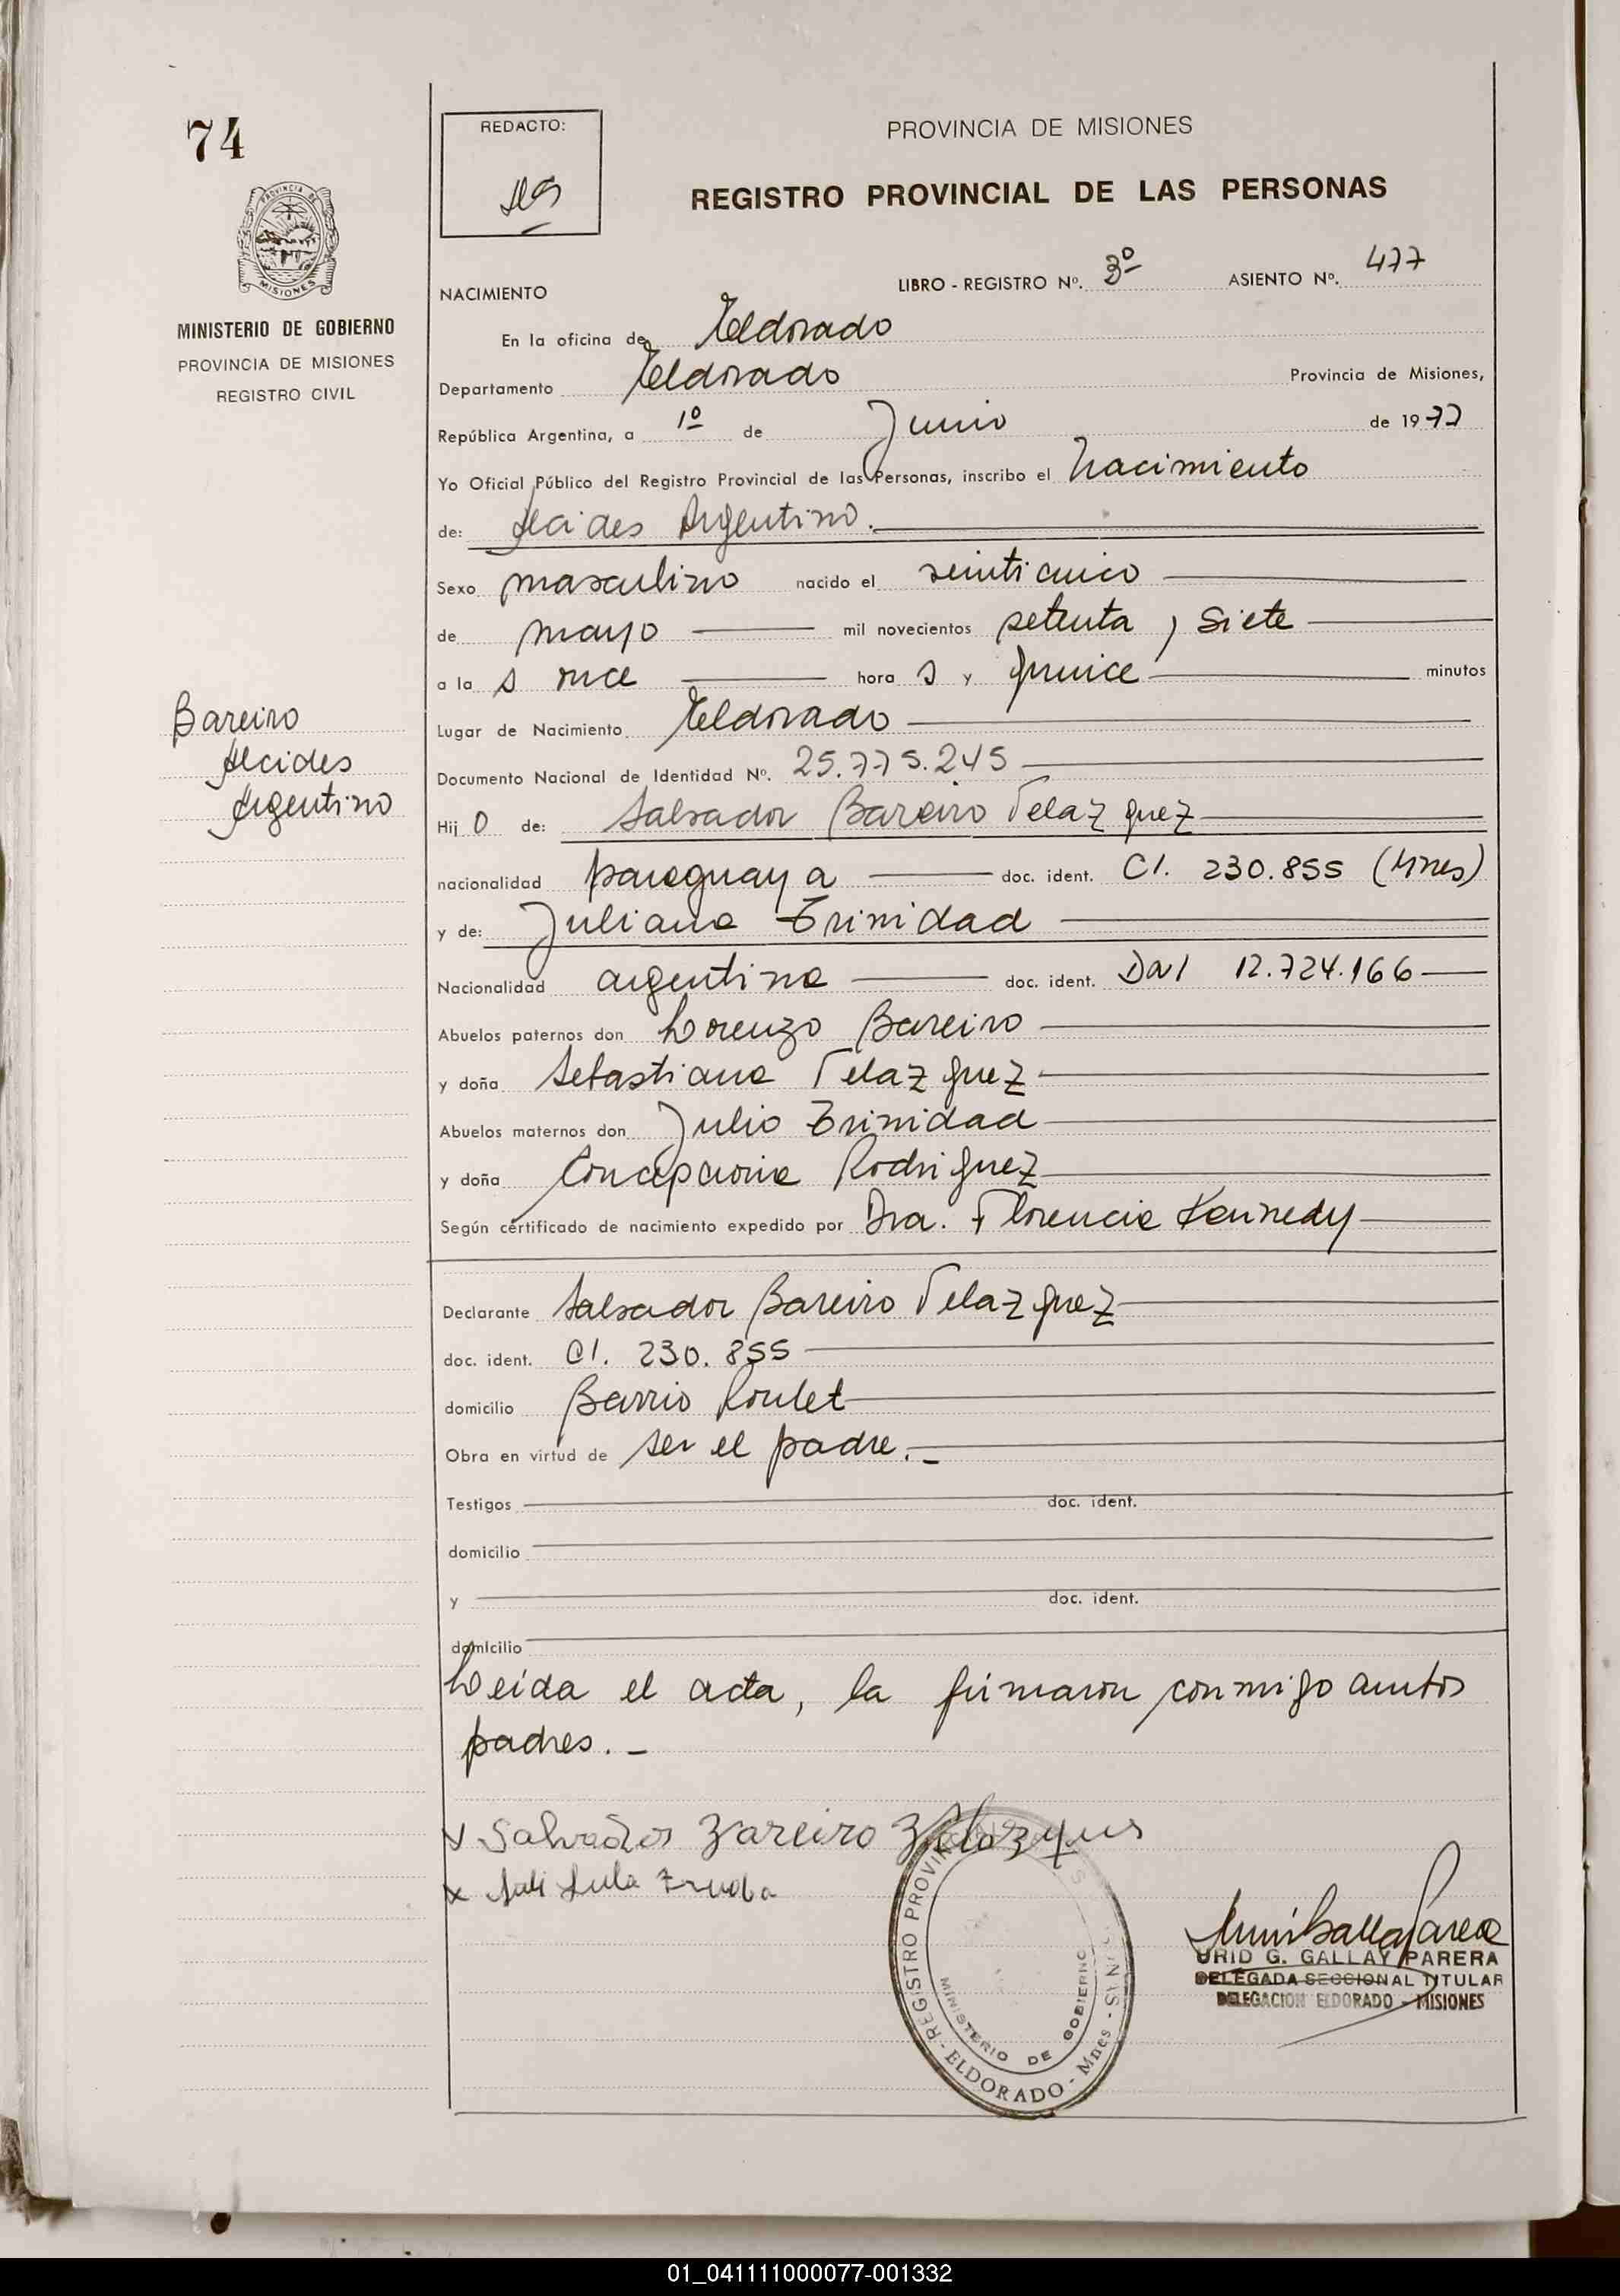 74
REDACTO:
PROVINCIA DE MISIONES
REGISTRO PROVINCIAL DE LAS PERSONAS
PROVINCIA DE
MISIONES
MINISTERIO DE GOBIERNO
PROVINCIA DE MISIONES
REGISTRO CIVIL
NACIMIENTO
LIBRO - REGISTRO Nº. 3º ASIENTO Nº. 477
En la oficina de Eldorado
Departamento Eldorado Provincia de Misiones,
República Argentina, a 1º de Junio de 1977
Yo Oficial Público del Registro Provincial de las Personas, inscribo el Nacimiento
de: Alcides Argentino.
Sexo masculino nacido el veinticinco
de mayo mil novecientos setenta y siete
a la s once hora s y quince minutos
Bareiro
Alcides
Argentino
Lugar de Nacimiento Eldorado
Documento Nacional de Identidad Nº. 25.775.245
Hij o de: Salvador Bareiro Velazquez
nacionalidad paraguaya doc. ident. CI. 230.855 (Mnes)
y de: Juliana Trinidad
Nacionalidad argentina doc. ident. DNI 12.724.166
Abuelos paternos don Lorenzo Bareiro
y doña Sebastiana Velazquez
Abuelos maternos don Julio Trinidad
y doña Concepciona Rodriguez
Según certificado de nacimiento expedido por Dra. Florencia Kennedy
Declarante Salvador Bareiro Velazquez
doc. ident. CI. 230.855
domicilio Barrio Roulet
Obra en virtud de ser el padre.-
Testigos doc. ident.
domicilio
y doc. ident.
domicilio
Leida el acta, la firmaron conmigo ambos
padres.-
x Salvador Bareiro
x
REGISTRO PROVINCIAL
- ELDORADO - Mnes -
MINISTERIO DE GOBIERNO
URID G. GALLAY PARERA
DELEGADA SECCIONAL TITULAR
DELEGACION ELDORADO - MISIONES
01_041111000077-001332